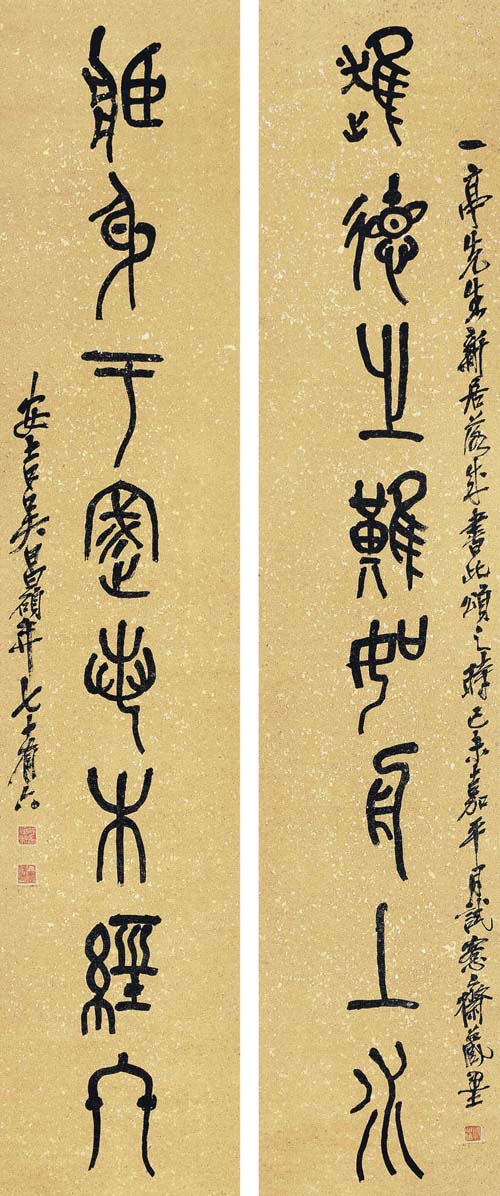 進德之難如舟上水
一亭先生新居落成書此頌之時己未嘉平月試愙齋藏墨
藏身于密若木經冬
安吉吳昌碩年七十有六